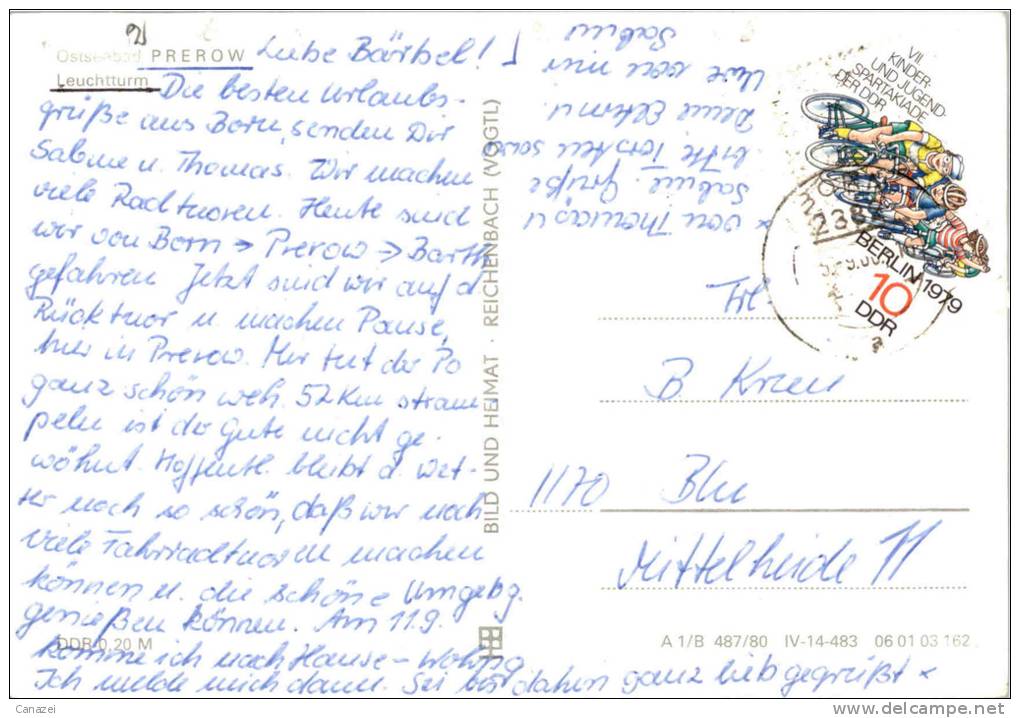 Ostseebad PREROW
Leuchtturm
Liebe Bärbel!
Die besten Urlaubs-
grüße aus Born, senden Dir
Sabine u. Thomas. Wir machen
viele Radtuoren. Heute sind
wir von Born → Prerow → Barth
gefahren. Jetzt sind wir auf d
Rücktuor u. machen Pause,
hier in Prerow. Mir tut der Po
ganz schön weh. 52 Km stram-
peln ist der Gute nicht ge-
wöhnt. Hoffentl. bleibt d. Wet-
ter noch so schön, daß wir noch
viele Fahrradtuoren machen
können u. die schöne Umgebg.
genießen können. Am 11.9.
komme ich nach Hause - Wohng
Ich melde mich dann. Sei bis dahin ganz lieb gegrüßt x
DDR 0,20 M
x von Thomas u
Sabine. Grüße
bitte Torsten sow.
Deine Eltern u.
von mir
Sabine
BILD UND HEIMAT · REICHENBACH (VOGTL)
VII.
KINDER-
UND JUGEND-
SPARTAKIADE
DER DDR
BERLIN 1979
10
DDR
Frl.
B.
1170 Bln
Mittelheide 11
A 1/B 487/80 IV-14-483 06 01 03 162
Canazei
delcampe.net